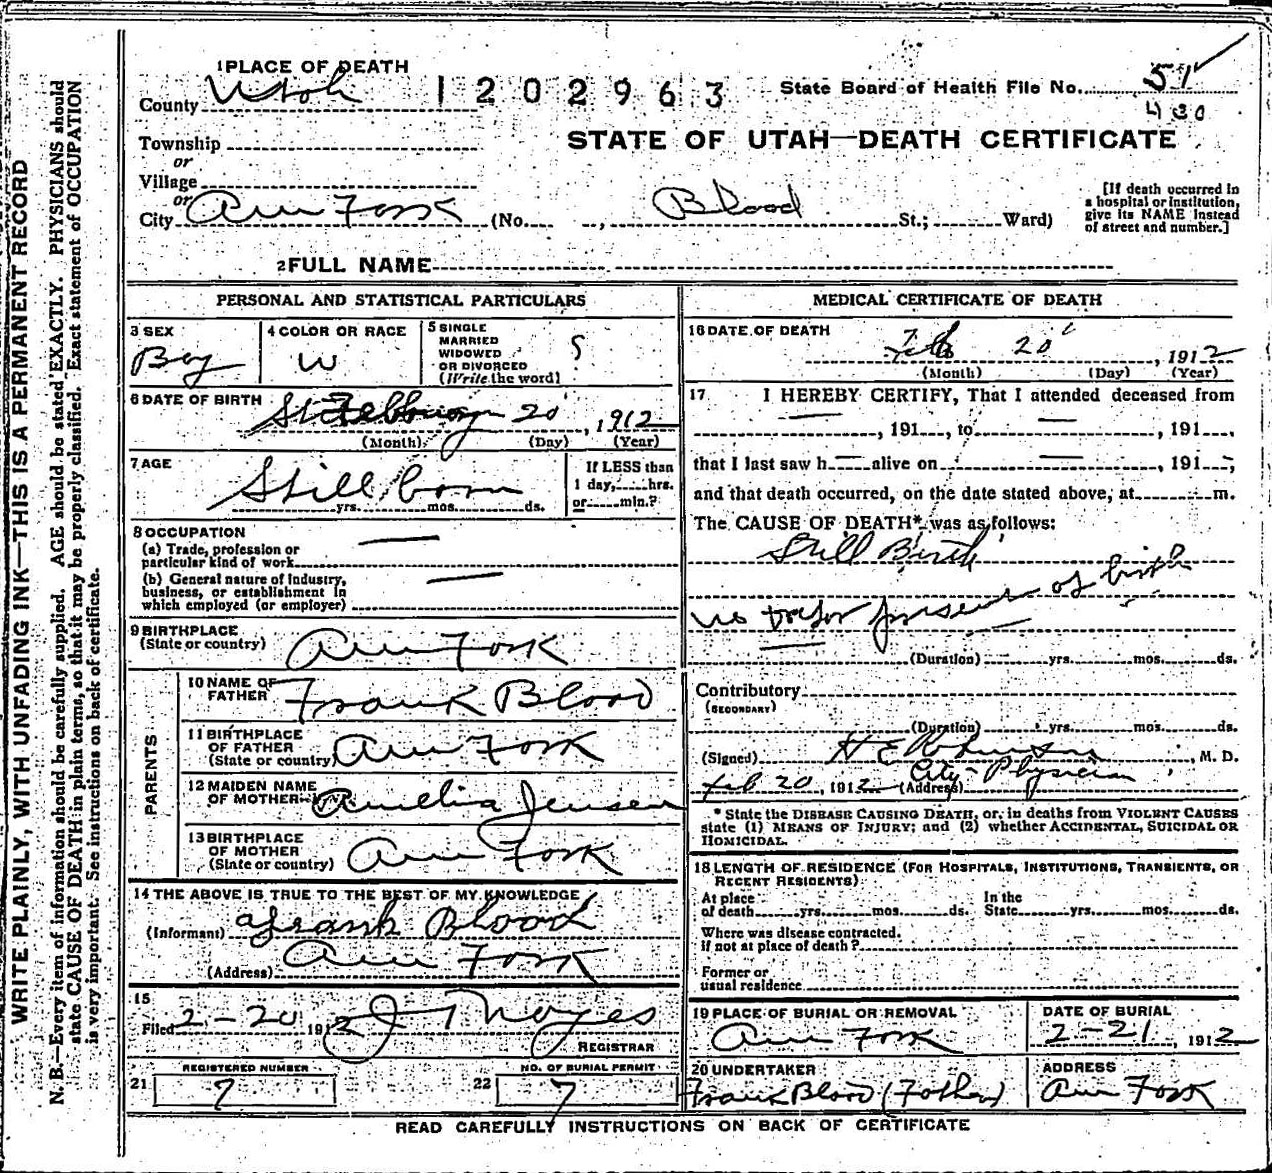 WRITE PLAINLY, WITH UNFADING INK—THIS IS A PERMANENT RECORD
N. B.—Every item of information should be carefully supplied. AGE should be stated EXACTLY. PHYSICIANS should
state CAUSE OF DEATH in plain terms, so that it may be properly classified. Exact statement of OCCUPATION
is very important. See instructions on back of certificate.
1 PLACE OF DEATH
County Utah
1202963
State Board of Health File No. 51
430
STATE OF UTAH—DEATH CERTIFICATE
Township
or
Village
or
City Am Fork (No. , Blood St.; Ward)
[If death occurred in
a hospital or institution,
give its NAME instead
of street and number.]
2 FULL NAME
PERSONAL AND STATISTICAL PARTICULARS
3 SEX
Boy
4 COLOR OR RACE
W
5 SINGLE
MARRIED
WIDOWED
OR DIVORCED
(Write the word)
S
6 DATE OF BIRTH
February 20, 1912
(Month) (Day) (Year)
7 AGE
Still born
yrs. mos. ds.
If LESS than
1 day, hrs.
or min.?
8 OCCUPATION
(a) Trade, profession or
particular kind of work
(b) General nature of industry,
business, or establishment in
which employed (or employer)
9 BIRTHPLACE
(State or country) Am Fork
PARENTS
10 NAME OF
FATHER Frank Blood
11 BIRTHPLACE
OF FATHER
(State or country) Am Fork
12 MAIDEN NAME
OF MOTHER Amelia Jensen
13 BIRTHPLACE
OF MOTHER
(State or country) Am Fork
14 THE ABOVE IS TRUE TO THE BEST OF MY KNOWLEDGE
(Informant) Frank Blood
(Address) Am Fork
15
Filed 2-20 1912 J T Noyes
REGISTRAR
REGISTERED NUMBER
21 7
NO. OF BURIAL PERMIT
22 7
MEDICAL CERTIFICATE OF DEATH
16 DATE OF DEATH
Feb 20, 1912
(Month) (Day) (Year)
17 I HEREBY CERTIFY, That I attended deceased from
—, 191 , to —, 191 ,
that I last saw h — alive on —, 191 —;
and that death occurred, on the date stated above, at m.
The CAUSE OF DEATH* was as follows:
Still Birth
no of birth
(Duration) yrs. mos. ds.
Contributory
(SECONDARY)
(Duration) yrs. mos. ds.
(Signed) H E Robinson, M. D.
Feb 20, 1912 (Address) City Physician
* State the DISEASE CAUSING DEATH, or, in deaths from VIOLENT CAUSES
state (1) MEANS OF INJURY; and (2) whether ACCIDENTAL, SUICIDAL OR
HOMICIDAL.
18 LENGTH OF RESIDENCE (FOR HOSPITALS, INSTITUTIONS, TRANSIENTS, OR
RECENT RESIDENTS)
At place
of death yrs. mos. ds.
In the
State yrs. mos. ds.
Where was disease contracted.
if not at place of death?
Former or
usual residence
19 PLACE OF BURIAL OR REMOVAL
Am Fork
DATE OF BURIAL
2-21, 1912
20 UNDERTAKER
Frank Blood (Father)
ADDRESS
Am Fork
READ CAREFULLY INSTRUCTIONS ON BACK OF CERTIFICATE